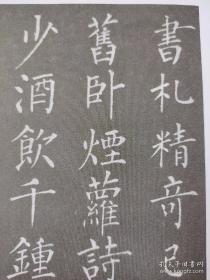 書札精奇已
舊卧煙蘿詩
少酒飲千鍾